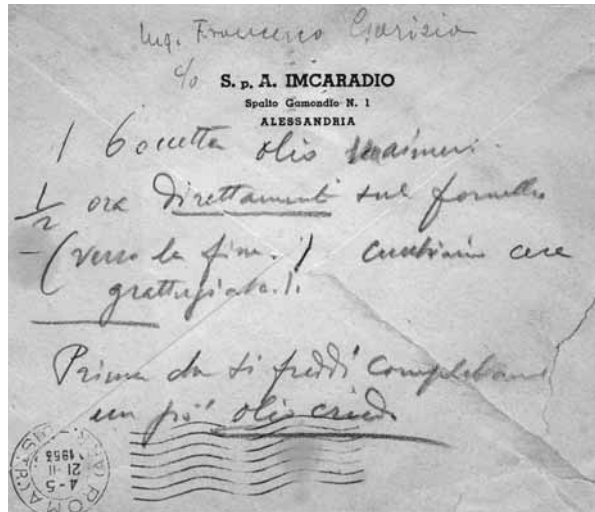 Ing. Francesco
c/o S. p. A. IMCARADIO
Spalto Gamondio N. 1
ALESSANDRIA
1 boccetta olio
1/2 ora direttamente sul fornello
(verso la fine.) cucchiaio cera
grattugiata).
Prima che si freddi
un pò olio
ROMA
4-5
21·II
1953